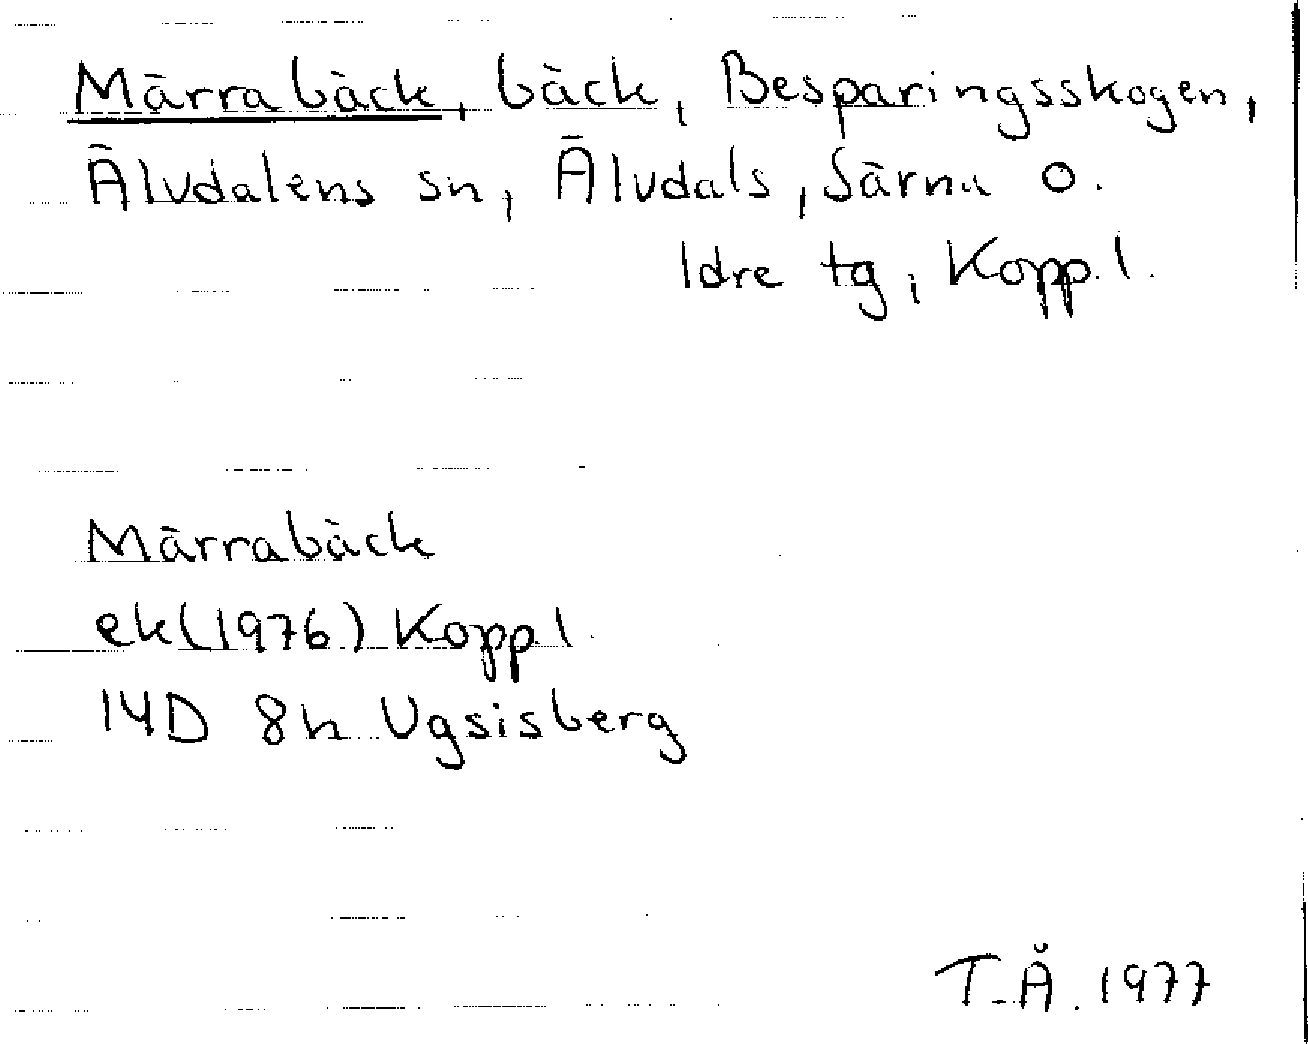 Märrabäck, bäck, Besparingsskogen,
Älvdalens sn, Älvdals, Särna o.
Idre tg, Kopp.l.
Märrabäck
ek(1976) Kopp l.
14D 8h Ugsisberg
T.Å. 1977